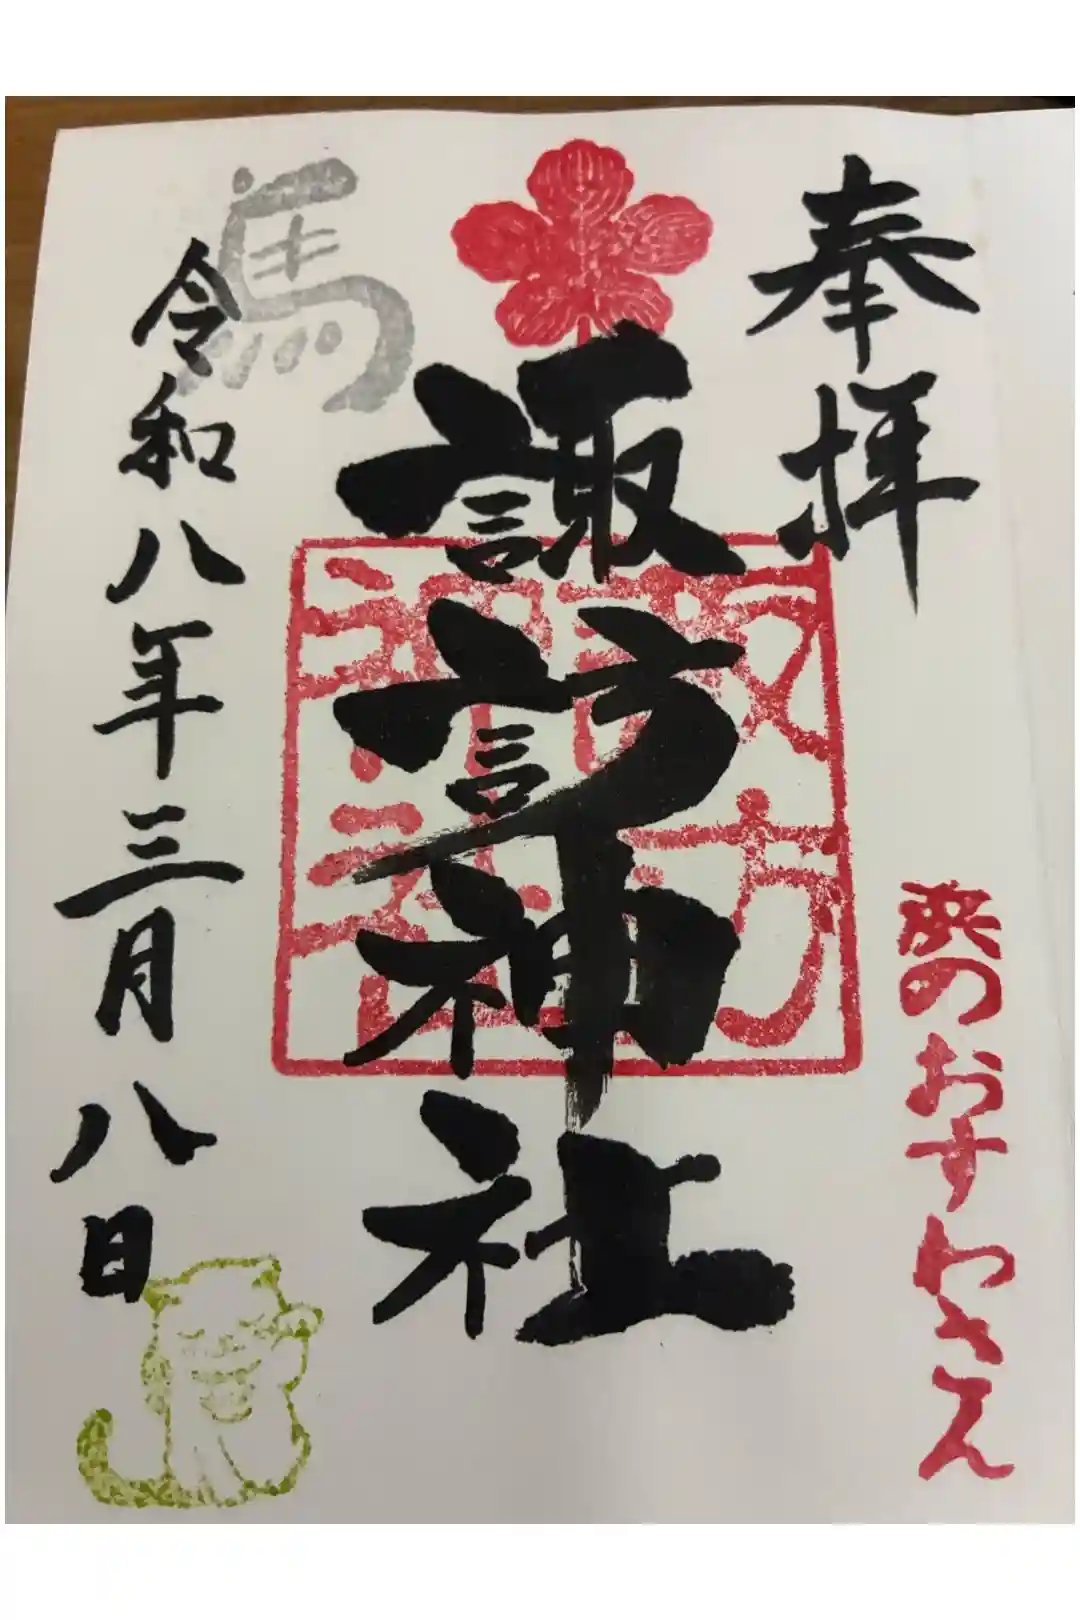 奉拝
浜のおすわさん
諏訪神社
諏訪
神社
馬
令和八年三月八日